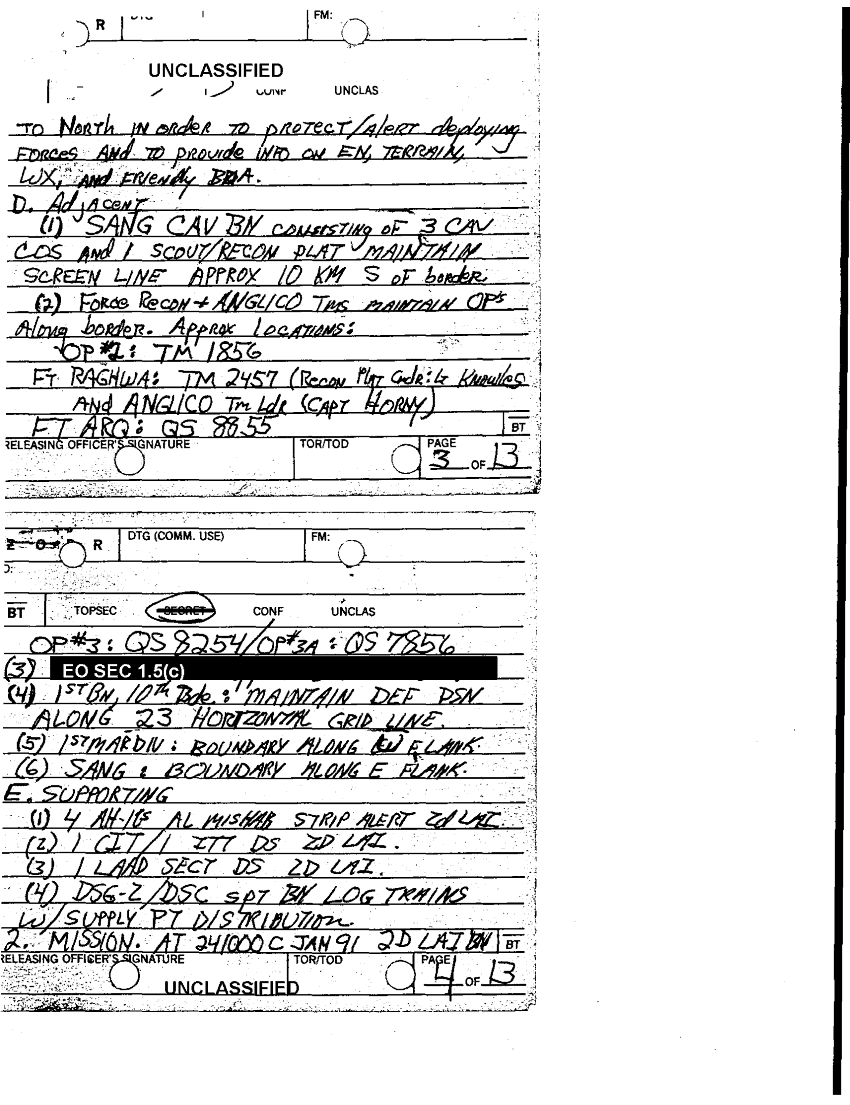 R
FM:
UNCLASSIFIED
CONF UNCLAS
TO NORTH IN ORDER TO PROTECT/ALERT deploying
FORCES AND TO PROVIDE INFO ON EN, TERRAIN,
WX, AND FRIENDLY BDA.
D. AdJACENT
(1) SANG CAV BN CONSISTING OF 3 CAV
COS AND 1 SCOUT/RECON PLAT MAINTAIN
SCREEN LINE APPROX 10 KM S OF border.
(2) FORCE RECON + ANGLICO TMS MAINTAIN OP's
Along border. APPROX LOCATIONS:
OP #2: TM 1856
FT RAGHWA: TM 2457 (RECON PLT Cmdr: Lt KNOWLES
AND ANGLICO Tm Ldr (CAPT HORNY)
FT ARQ: QS 8855
BT
RELEASING OFFICER'S SIGNATURE TOR/TOD PAGE
3 OF 13
Z O R DTG (COMM. USE) FM:
BT TOPSEC SECRET CONF UNCLAS
OP #3: QS 8254/OP #3A: QS 7856
(3) EO SEC 1.5(c)
(4) 1ST BN, 10TH Bde.: MAINTAIN DEF PSN
ALONG 23 HORIZONTAL GRID LINE.
(5) 1ST MARDIV: BOUNDARY ALONG W FLANK.
(6) SANG: BOUNDARY ALONG E FLANK.
E. SUPPORTING
(1) 4 AH-1Gs AL MISHAB STRIP ALERT 2d LAI.
(2) 1 CIT/1 ITT DS 2D LAI.
(3) 1 LAAD SECT DS 2D LAI.
(4) DSG-2/DSC SPT BN LOG TRAINS
W/SUPPLY PT DISTRIBUTION.
2. MISSION. AT 241000C JAN 91 2D LAI BN BT
RELEASING OFFICER'S SIGNATURE TOR/TOD PAGE
4 OF 13
UNCLASSIFIED